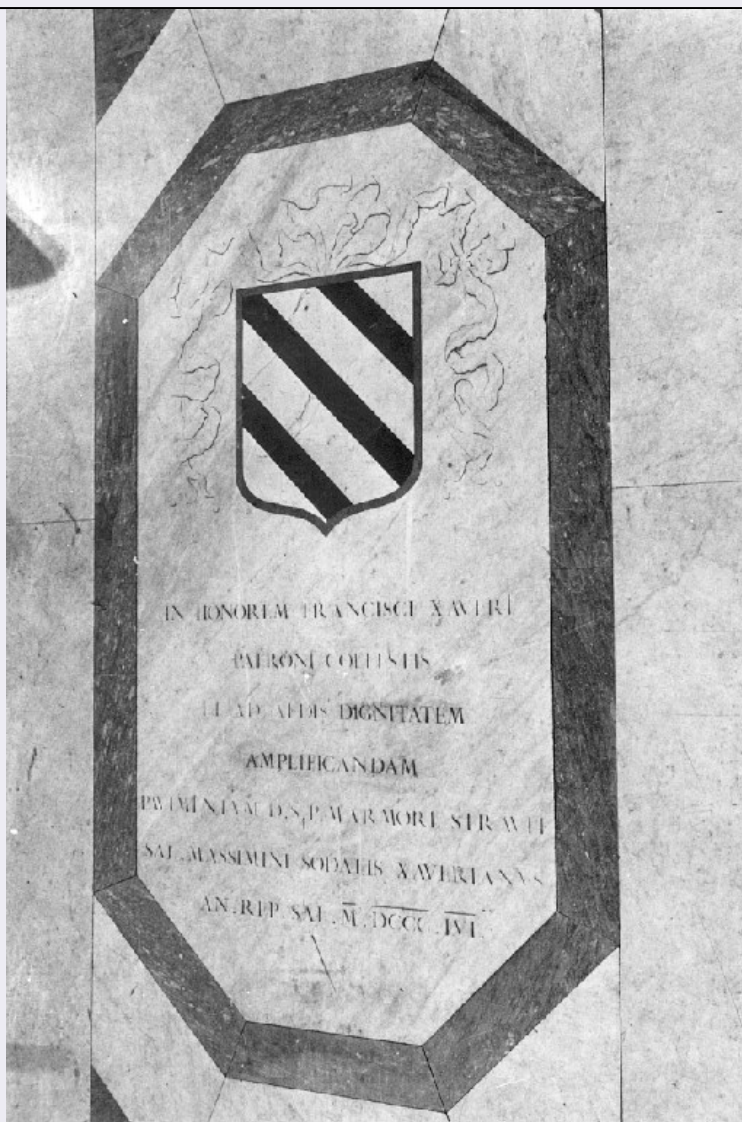 IN HONOREM FRANCISCI XAVERI
PATRONI COELESTIS
ET AD AEDIS DIGNITATEM
AMPLIFICANDAM
PAVIMENTVM D.S.P. MARMORE STRAVIT
SAL. MASSIMINI SODALIS XAVERIANVS
AN. REP. SAL. M. DCCC. LVI.